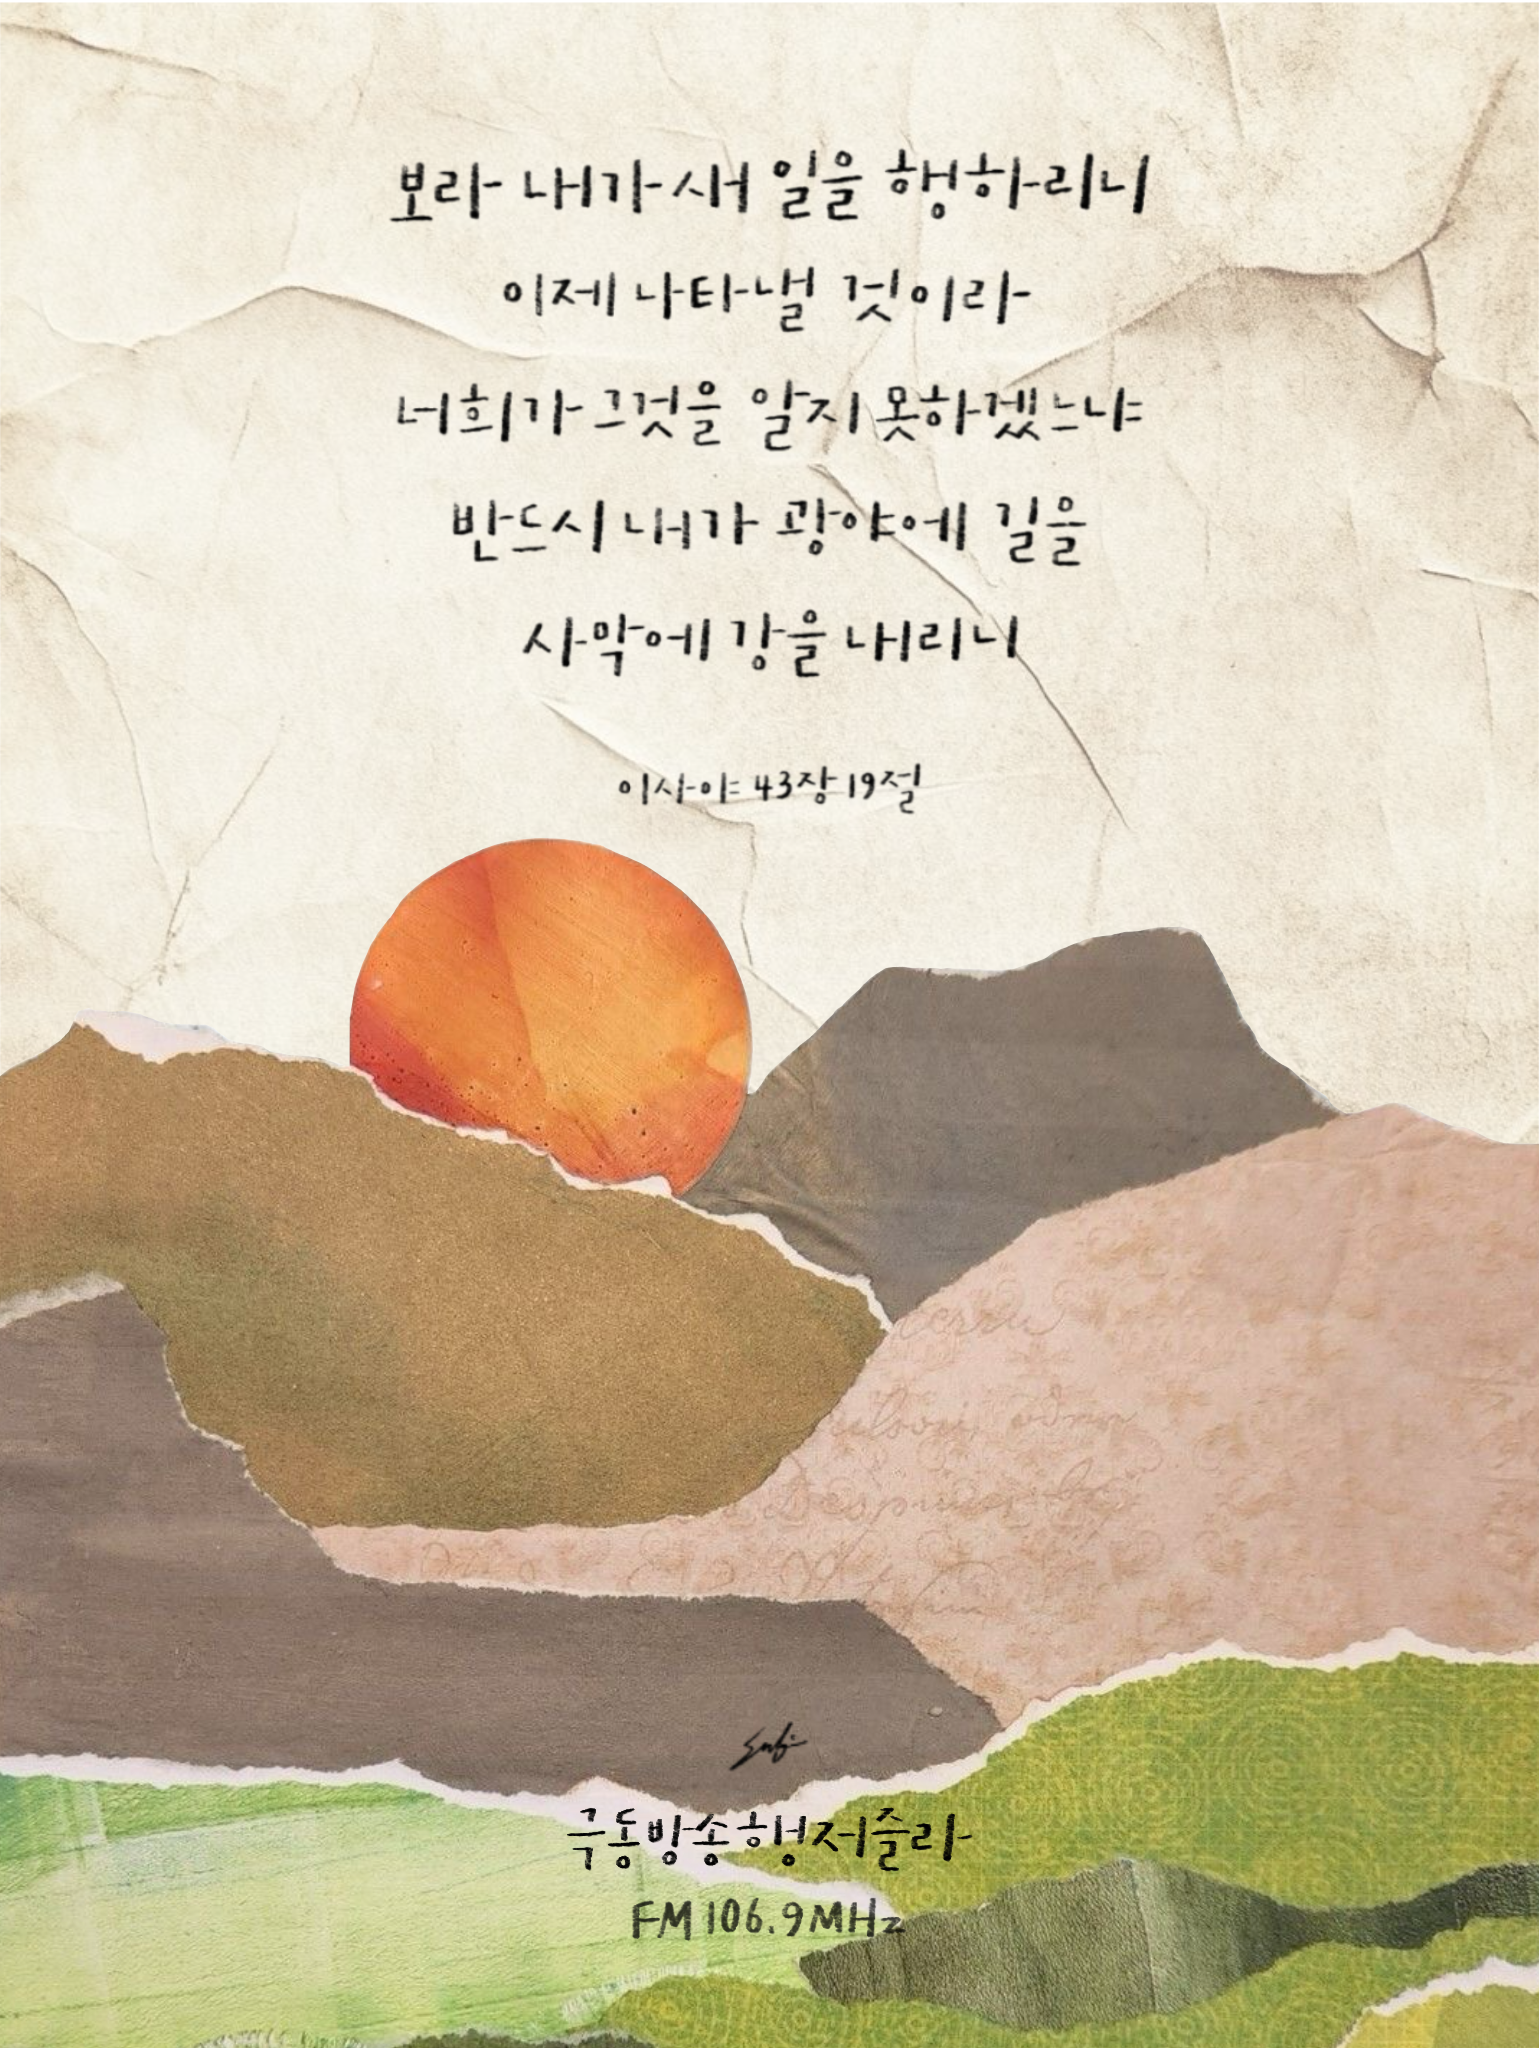 보라 내가 새 일을 행하리니
이제 나타낼 것이라
너희가 그것을 알지 못하겠느냐
반드시 내가 광야에 길을
사막에 강을 내리니
이사야 43장 19절
극동방송 행저즐라
FM 106.9MHz